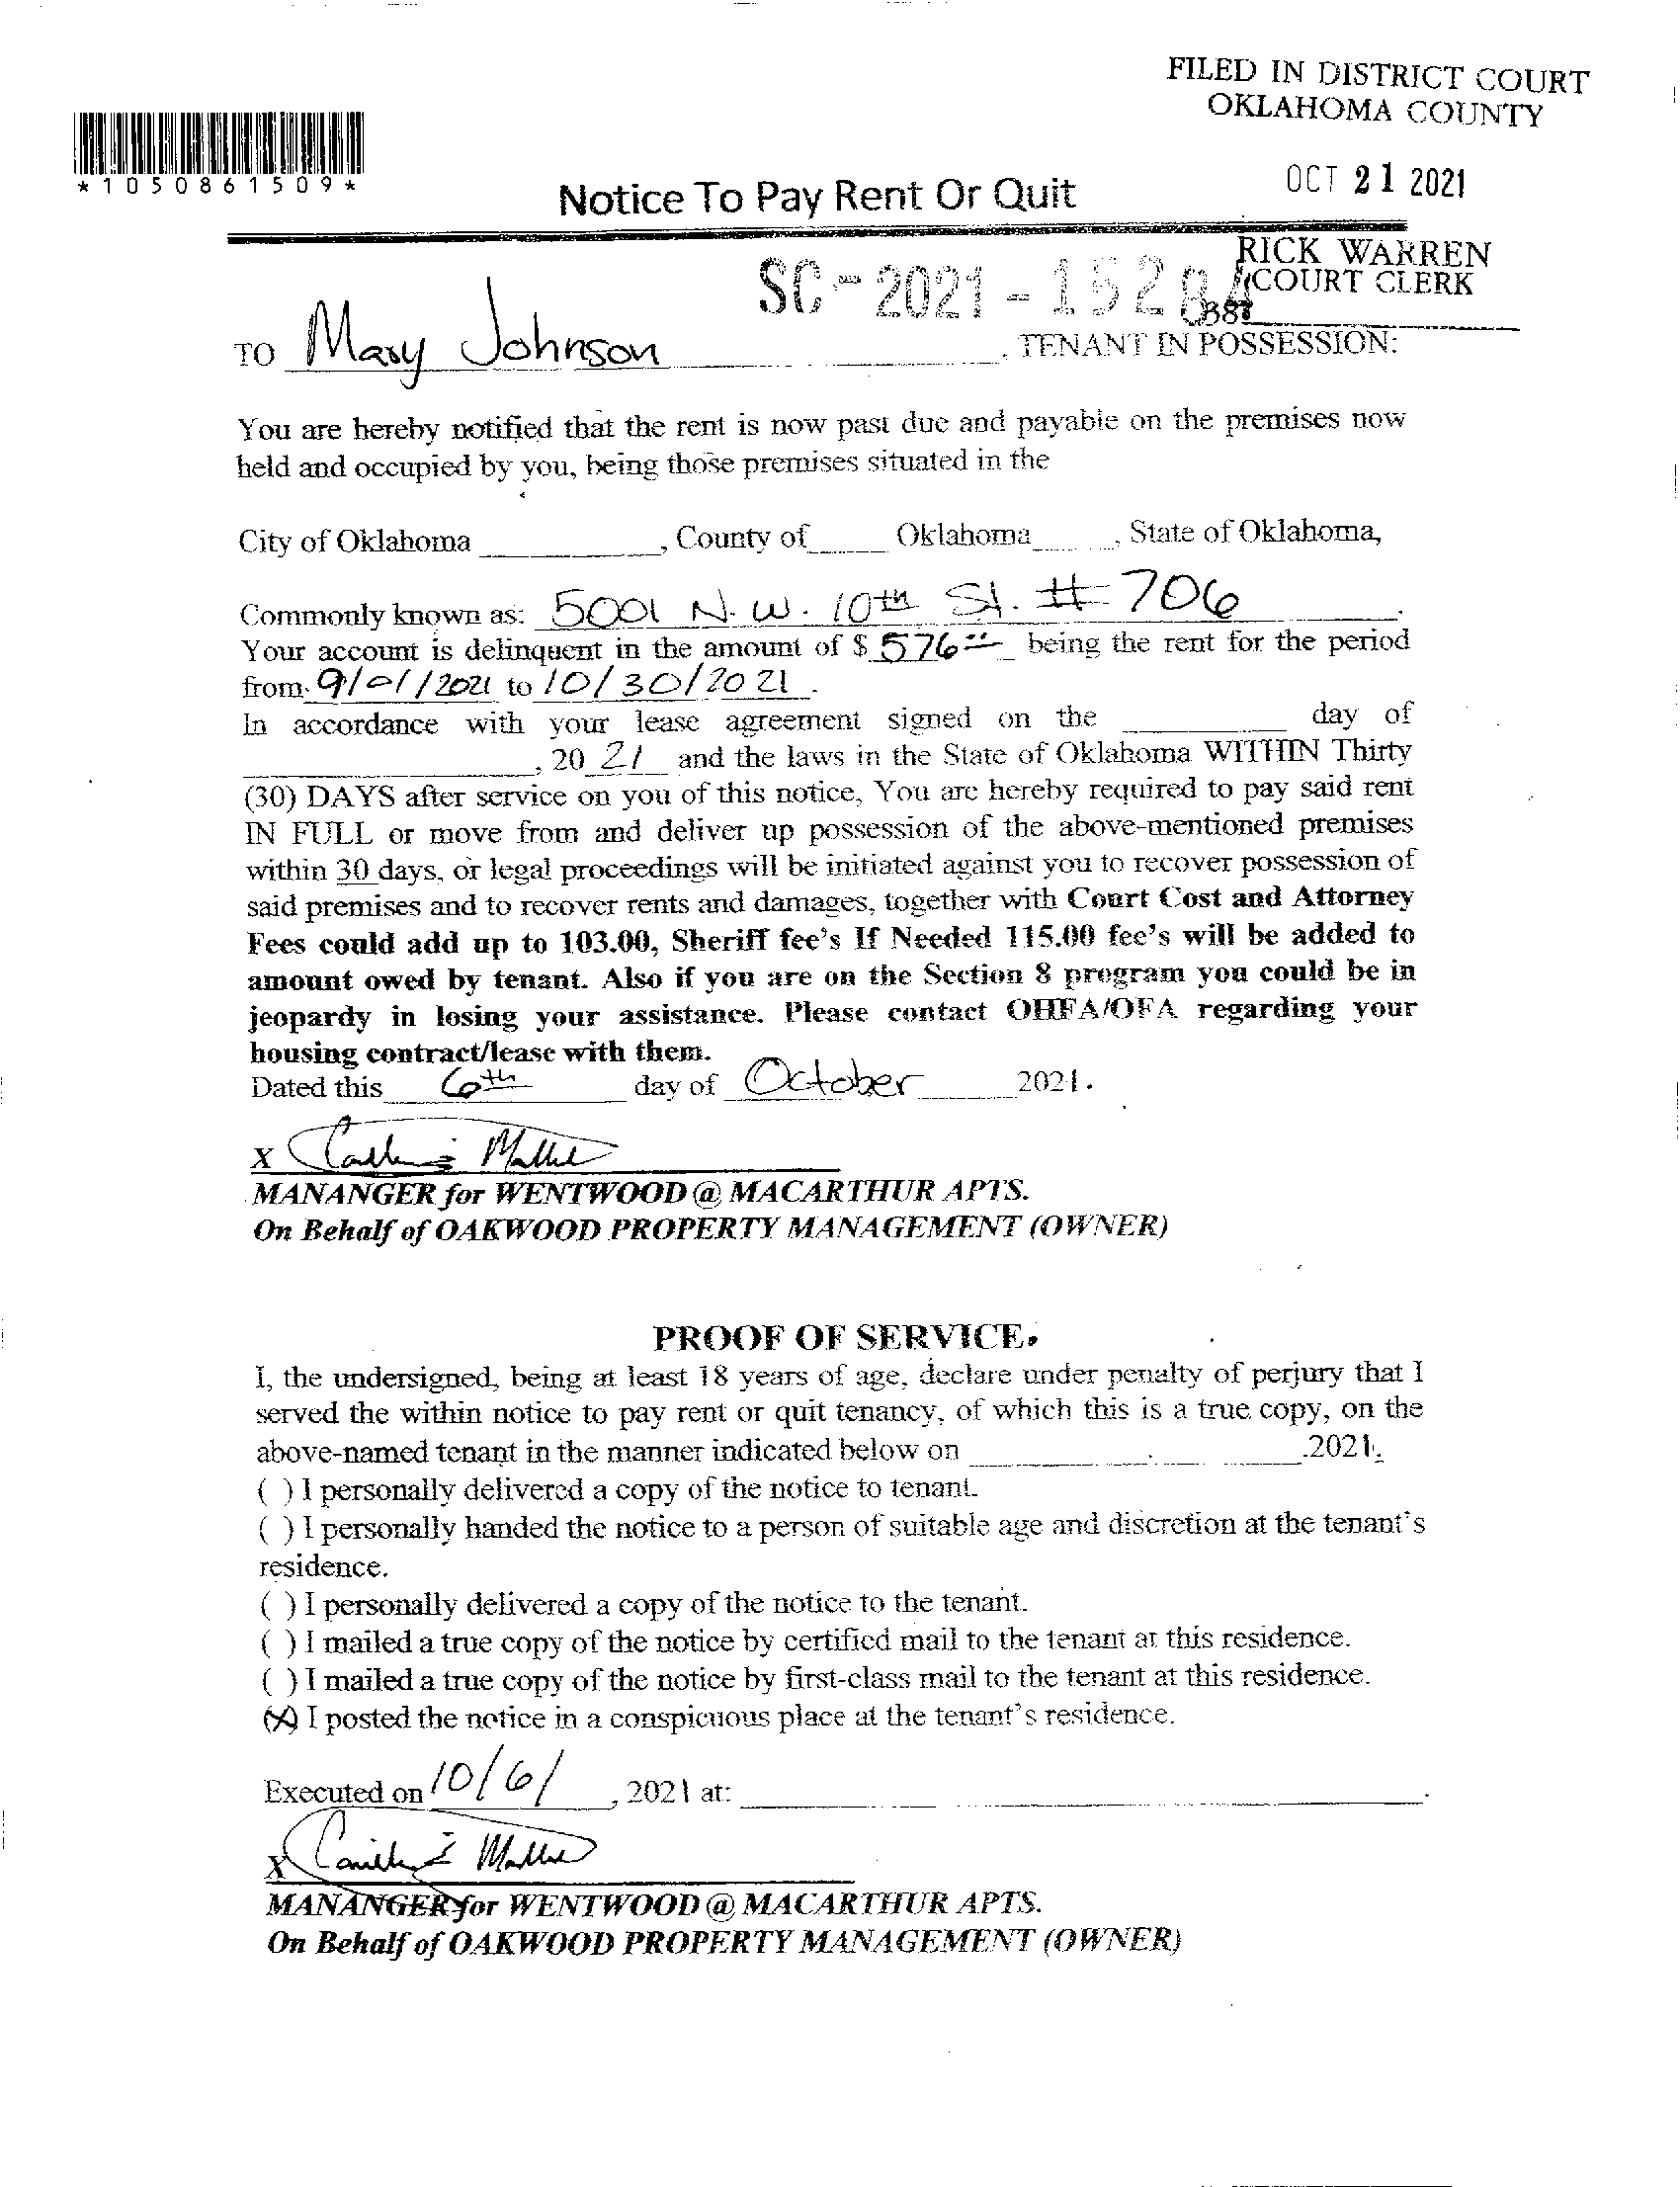 FILED IN DISTRICT COURT
OKLAHOMA COUNTY
*1050861509*
OCT 21 2021
Notice To Pay Rent Or Quit
RICK WARREN
COURT CLERK
SC-2021-1528
TO Mary Johnson, TENANT IN POSSESSION:
You are hereby notified that the rent is now past due and payable on the premises now
held and occupied by you, being those premises situated in the
City of Oklahoma ____________, County of_____ Oklahoma_____, State of Oklahoma,
Commonly known as: 5001 N.W. 10th St. # 706.
Your account is delinquent in the amount of $ 576 being the rent for the period
from 9/01/2021 to 10/30/2021.
In accordance with your lease agreement signed on the __________ day of
__________________, 20 21 and the laws in the State of Oklahoma WITHIN Thirty
(30) DAYS after service on you of this notice, You are hereby required to pay said rent
IN FULL or move from and deliver up possession of the above-mentioned premises
within 30 days, or legal proceedings will be initiated against you to recover possession of
said premises and to recover rents and damages, together with Court Cost and Attorney
Fees could add up to 103.00, Sheriff fee's If Needed 115.00 fee's will be added to
amount owed by tenant. Also if you are on the Section 8 program you could be in
jeopardy in losing your assistance. Please contact OHFA/OFA regarding your
housing contract/lease with them.
Dated this 6th day of October 2021.
X
MANANGER for WENTWOOD @ MACARTHUR APTS.
On Behalf of OAKWOOD PROPERTY MANAGEMENT (OWNER)
PROOF OF SERVICE.
I, the undersigned, being at least 18 years of age, declare under penalty of perjury that I
served the within notice to pay rent or quit tenancy, of which this is a true copy, on the
above-named tenant in the manner indicated below on ____________________.2021.
( ) I personally delivered a copy of the notice to tenant.
( ) I personally handed the notice to a person of suitable age and discretion at the tenant's
residence.
( ) I personally delivered a copy of the notice to the tenant.
( ) I mailed a true copy of the notice by certified mail to the tenant at this residence.
( ) I mailed a true copy of the notice by first-class mail to the tenant at this residence.
(X) I posted the notice in a conspicuous place at the tenant's residence.
Executed on 10/6/, 2021 at: ______________________________.
X
MANANGER for WENTWOOD @ MACARTHUR APTS.
On Behalf of OAKWOOD PROPERTY MANAGEMENT (OWNER)